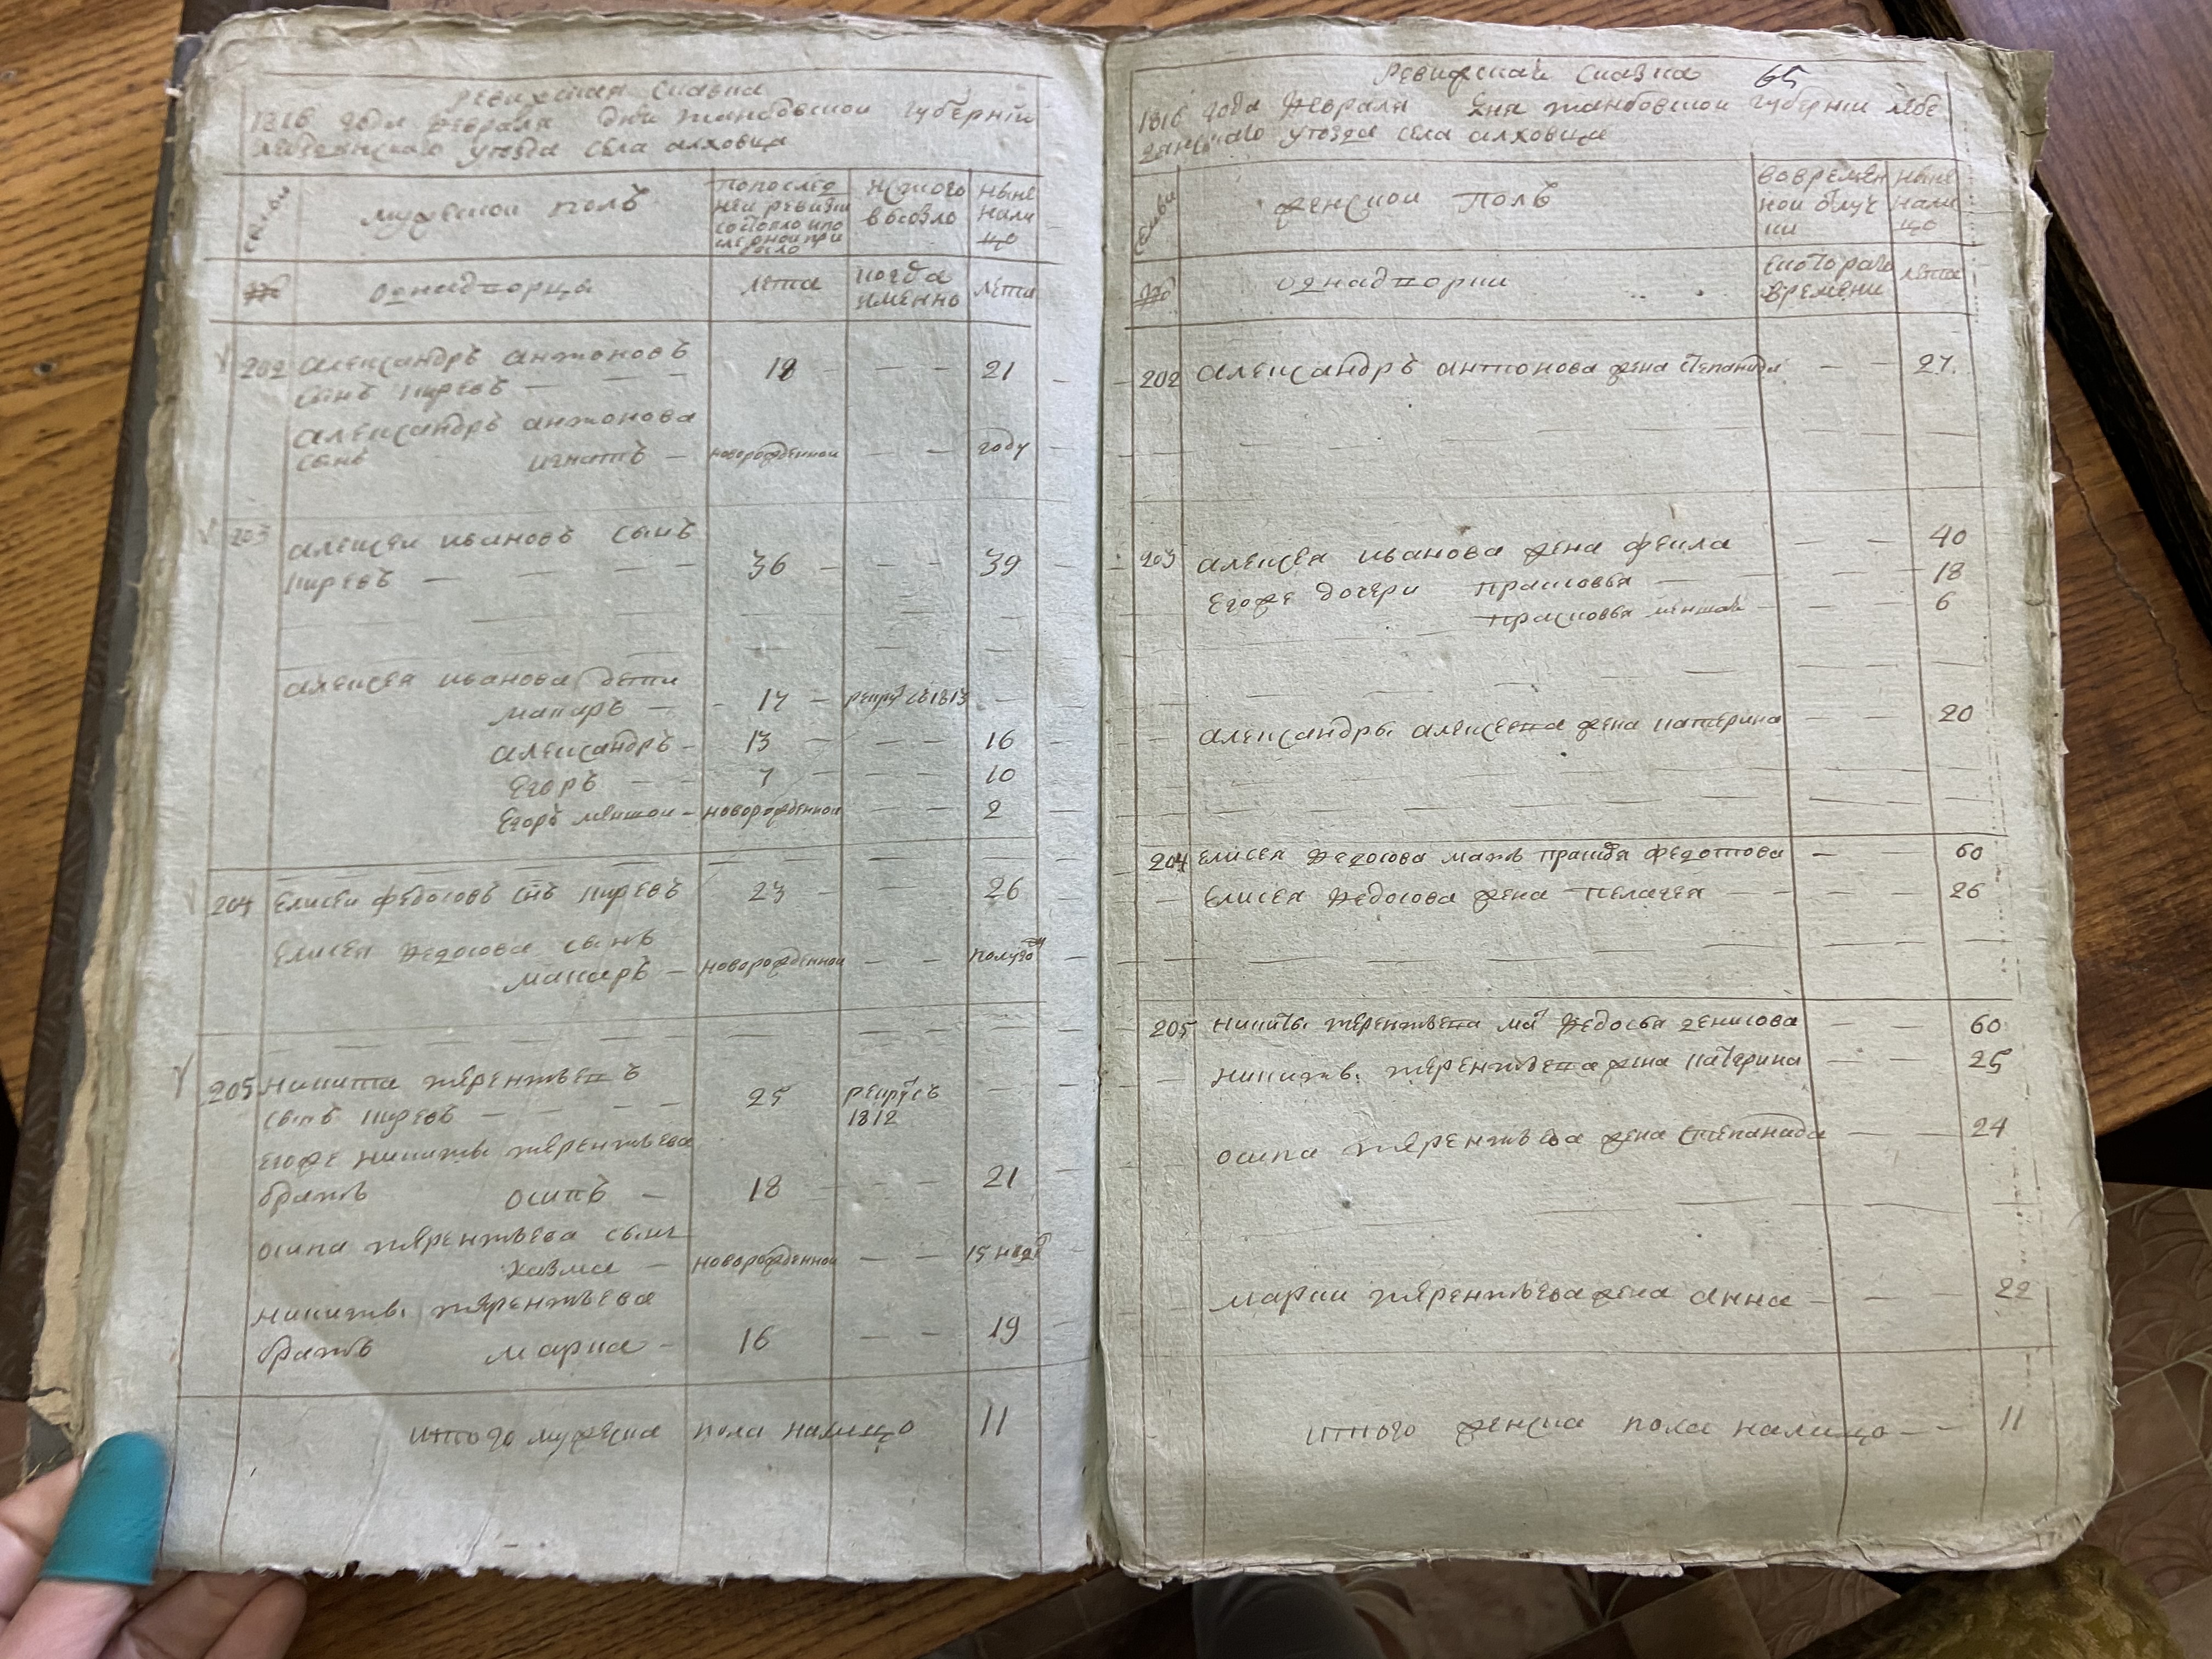 ревижская сказка
1816 года февраля дня танбовской губернiи
лебедянскаго уезда села алховца
семьи
мужескои полъ
попослед
неи ревизiи
состояло и по
сле онои при
было
ис того
выбыло
ныне
нали
цо
№
однадворцы
лета
когда
именно
лета
202 александръ антоновъ
сынъ пиревъ — — — 18 — — — 21
александръ антонова
сынъ игнатъ — новорожденнои — — году
203 алексеи ивановъ сынъ
пиревъ — — — — 36 — — — 39
алексея иванова дети
макаръ — 17 — рекру съ 1813
александръ — 13 — — 16
егоръ — — 7 — — — 10
егоръ меншои — новорожденнои — — 2
204 елисеи федосовъ снъ пиревъ 23 — — 26
елисея федосова сынъ
макаръ — новорожденнои — — полуго
205 никита терентьевъ
сынъ пиревъ — — — — 25 рекрутъ
1812
егоже никиты терентьева
братъ осипъ — 18 — — — 21
осипа терентьева сынъ
козма — новорожденнои — — 15 недъ
никиты терентьева
братъ марка — 16 — — 19
итого мужеска пола налицо 11
ревижская сказка 65
1816 года февраля дня танбовскои губернiи лебе
дянскаго уезда села алховца
семьи
женскои полъ
вовремен
нои отлуч
ки
ныне
нали
цо
№
однадворки
скотораго
времени
лета
202 александръ антонова жена степанида — — 27.
203 алексея иванова жена фекла — — 40
егоже дочери прасковья — — — 18
прасковья меншая — — — 6
александры алексеева жена катерина — — 20
204 елисея федосова мать прасковья федотова — — 60
елисея федосова жена пелагея — — — 26
205 никиты терентьева ма федосья денисова — — 60
никиты терентьева жена катерина — — 25
осипа терентьева жена степанида — — 24
марки терентьева жена анна — — — 22
итого женска пола налицо — — 11